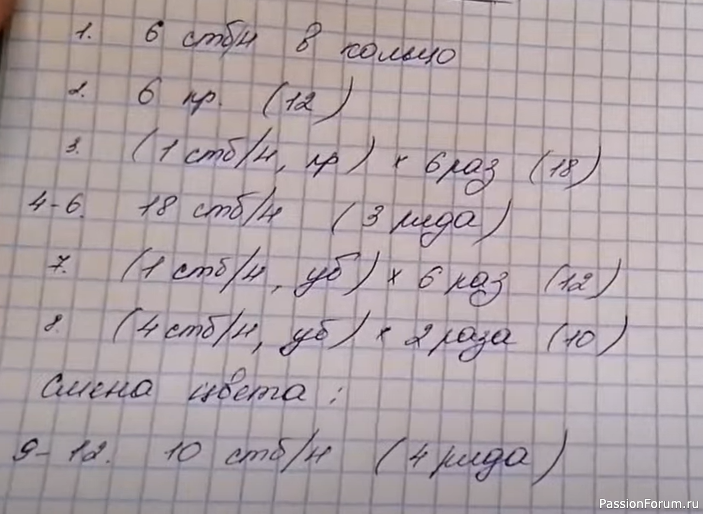 1. 6 стб/н в кольцо
2. 6 пр. (12)
3. (1 стб/н, пр) × 6 раз (18)
4-6. 18 стб/н (3 ряда)
7. (1 стб/н, уб) × 6 раз (12)
8. (4 стб/н, уб) × 2 раза (10)
смена цвета:
9-12. 10 стб/н (4 ряда)
PassionForum.ru